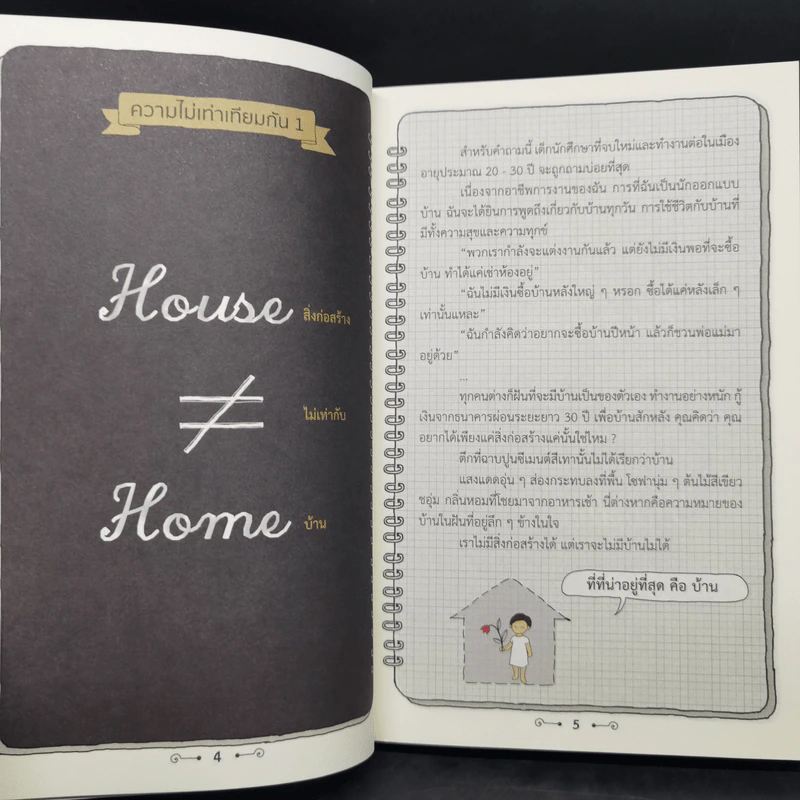 ความไม่เท่าเทียมกัน 1
House สิ่งก่อสร้าง
≠ ไม่เท่ากับ
Home บ้าน
4
สำหรับคำถามนี้ เด็กนักศึกษาที่จบใหม่และทำงานต่อในเมือง
อายุประมาณ 20 - 30 ปี จะถูกถามบ่อยที่สุด
เนื่องจากอาชีพการงานของฉัน การที่ฉันเป็นนักออกแบบ
บ้าน ฉันจะได้ยินการพูดถึงเกี่ยวกับบ้านทุกวัน การใช้ชีวิตกับบ้านที่
มีทั้งความสุขและความทุกข์
“พวกเรากำลังจะแต่งงานกันแล้ว แต่ยังไม่มีเงินพอที่จะซื้อ
บ้าน ทำได้แค่เช่าห้องอยู่”
“ฉันไม่มีเงินซื้อบ้านหลังใหญ่ ๆ หรอก ซื้อได้แค่หลังเล็ก ๆ
เท่านั้นแหละ”
“ฉันกำลังคิดว่าอยากจะซื้อบ้านปีหน้า แล้วก็ชวนพ่อแม่มา
อยู่ด้วย”
...
ทุกคนต่างก็ฝันที่จะมีบ้านเป็นของตัวเอง ทำงานอย่างหนัก กู้
เงินจากธนาคารผ่อนระยะยาว 30 ปี เพื่อบ้านสักหลัง คุณคิดว่า คุณ
อยากได้เพียงแค่สิ่งก่อสร้างแค่นั้นใช่ไหม ?
ตึกที่ฉาบปูนซีเมนต์สีเทานั้นไม่ได้เรียกว่าบ้าน
แสงแดดอุ่น ๆ ส่องกระทบลงที่พื้น โซฟานุ่ม ๆ ต้นไม้สีเขียว
ชอุ่ม กลิ่นหอมที่โชยมาจากอาหารเช้า นี่ต่างหากคือความหมายของ
บ้านในฝันที่อยู่ลึก ๆ ข้างในใจ
เราไม่มีสิ่งก่อสร้างได้ แต่เราจะไม่มีบ้านไม่ได้
ที่ที่น่าอยู่ที่สุด คือ บ้าน
5